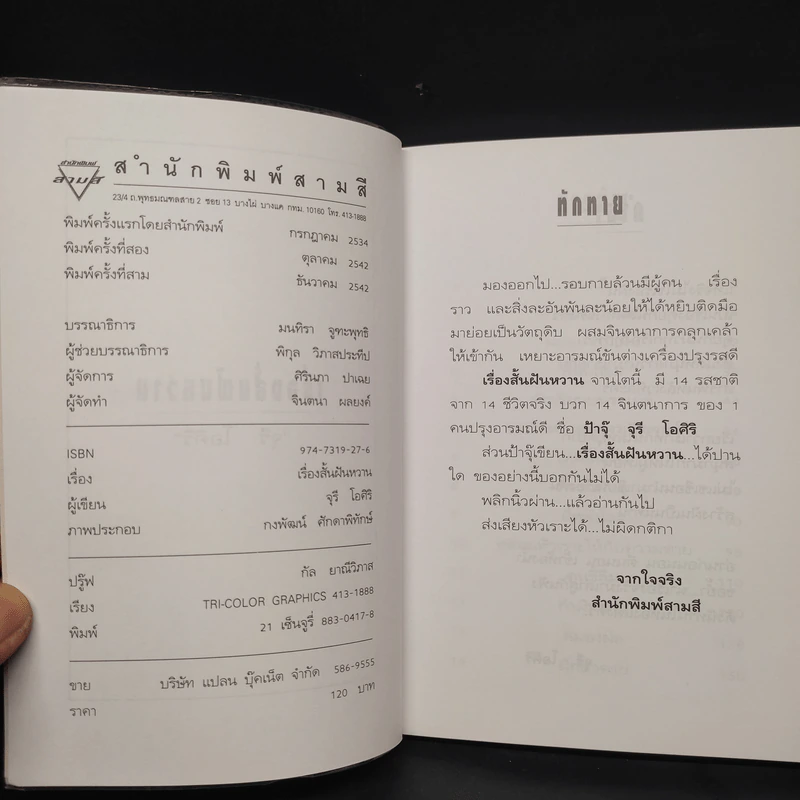 สำนักพิมพ์
สามสี
สำนักพิมพ์สามสี
23/4 ถ.พุทธมณฑลสาย 2 ซอย 13 บางไผ่ บางแค กทม. 10160 โทร. 413-1888
พิมพ์ครั้งแรกโดยสำนักพิมพ์ กรกฎาคม 2534
พิมพ์ครั้งที่สอง ตุลาคม 2542
พิมพ์ครั้งที่สาม ธันวาคม 2542
บรรณาธิการ มนทิรา จูฑะพุทธิ
ผู้ช่วยบรรณาธิการ พิกุล วิภาสประทีป
ผู้จัดการ ศิรินภา ปาเฉย
ผู้จัดทำ จินตนา ผลยงค์
ISBN 974-7319-27-6
เรื่อง เรื่องสั้นฝันหวาน
ผู้เขียน จุรี โอศิริ
ภาพประกอบ กงพัฒน์ ศักดาพิทักษ์
ปรู๊ฟ กัล ยาณีวิภาส
เรียง TRI-COLOR GRAPHICS 413-1888
พิมพ์ 21 เซ็นจูรี่ 883-0417-8
ขาย บริษัท แปลน บุ๊คเน็ต จำกัด 586-9555
ราคา 120 บาท
ทักทาย
มองออกไป...รอบกายล้วนมีผู้คน เรื่อง
ราว และสิ่งละอันพันละน้อยให้ได้หยิบติดมือ
มาย่อยเป็นวัตถุดิบ ผสมจินตนาการคลุกเคล้า
ให้เข้ากัน เหยาะอารมณ์ขันต่างเครื่องปรุงรสดี
เรื่องสั้นฝันหวาน จานโตนี้ มี 14 รสชาติ
จาก 14 ชีวิตจริง บวก 14 จินตนาการ ของ 1
คนปรุงอารมณ์ดี ชื่อ ป้าจุ๊ จุรี โอศิริ
ส่วนป้าจุ๊เขียน...เรื่องสั้นฝันหวาน...ได้ปาน
ใด ของอย่างนี้บอกกันไม่ได้
พลิกนิ้วผ่าน...แล้วอ่านกันไป
ส่งเสียงหัวเราะได้...ไม่ผิดกติกา
จากใจจริง
สำนักพิมพ์สามสี